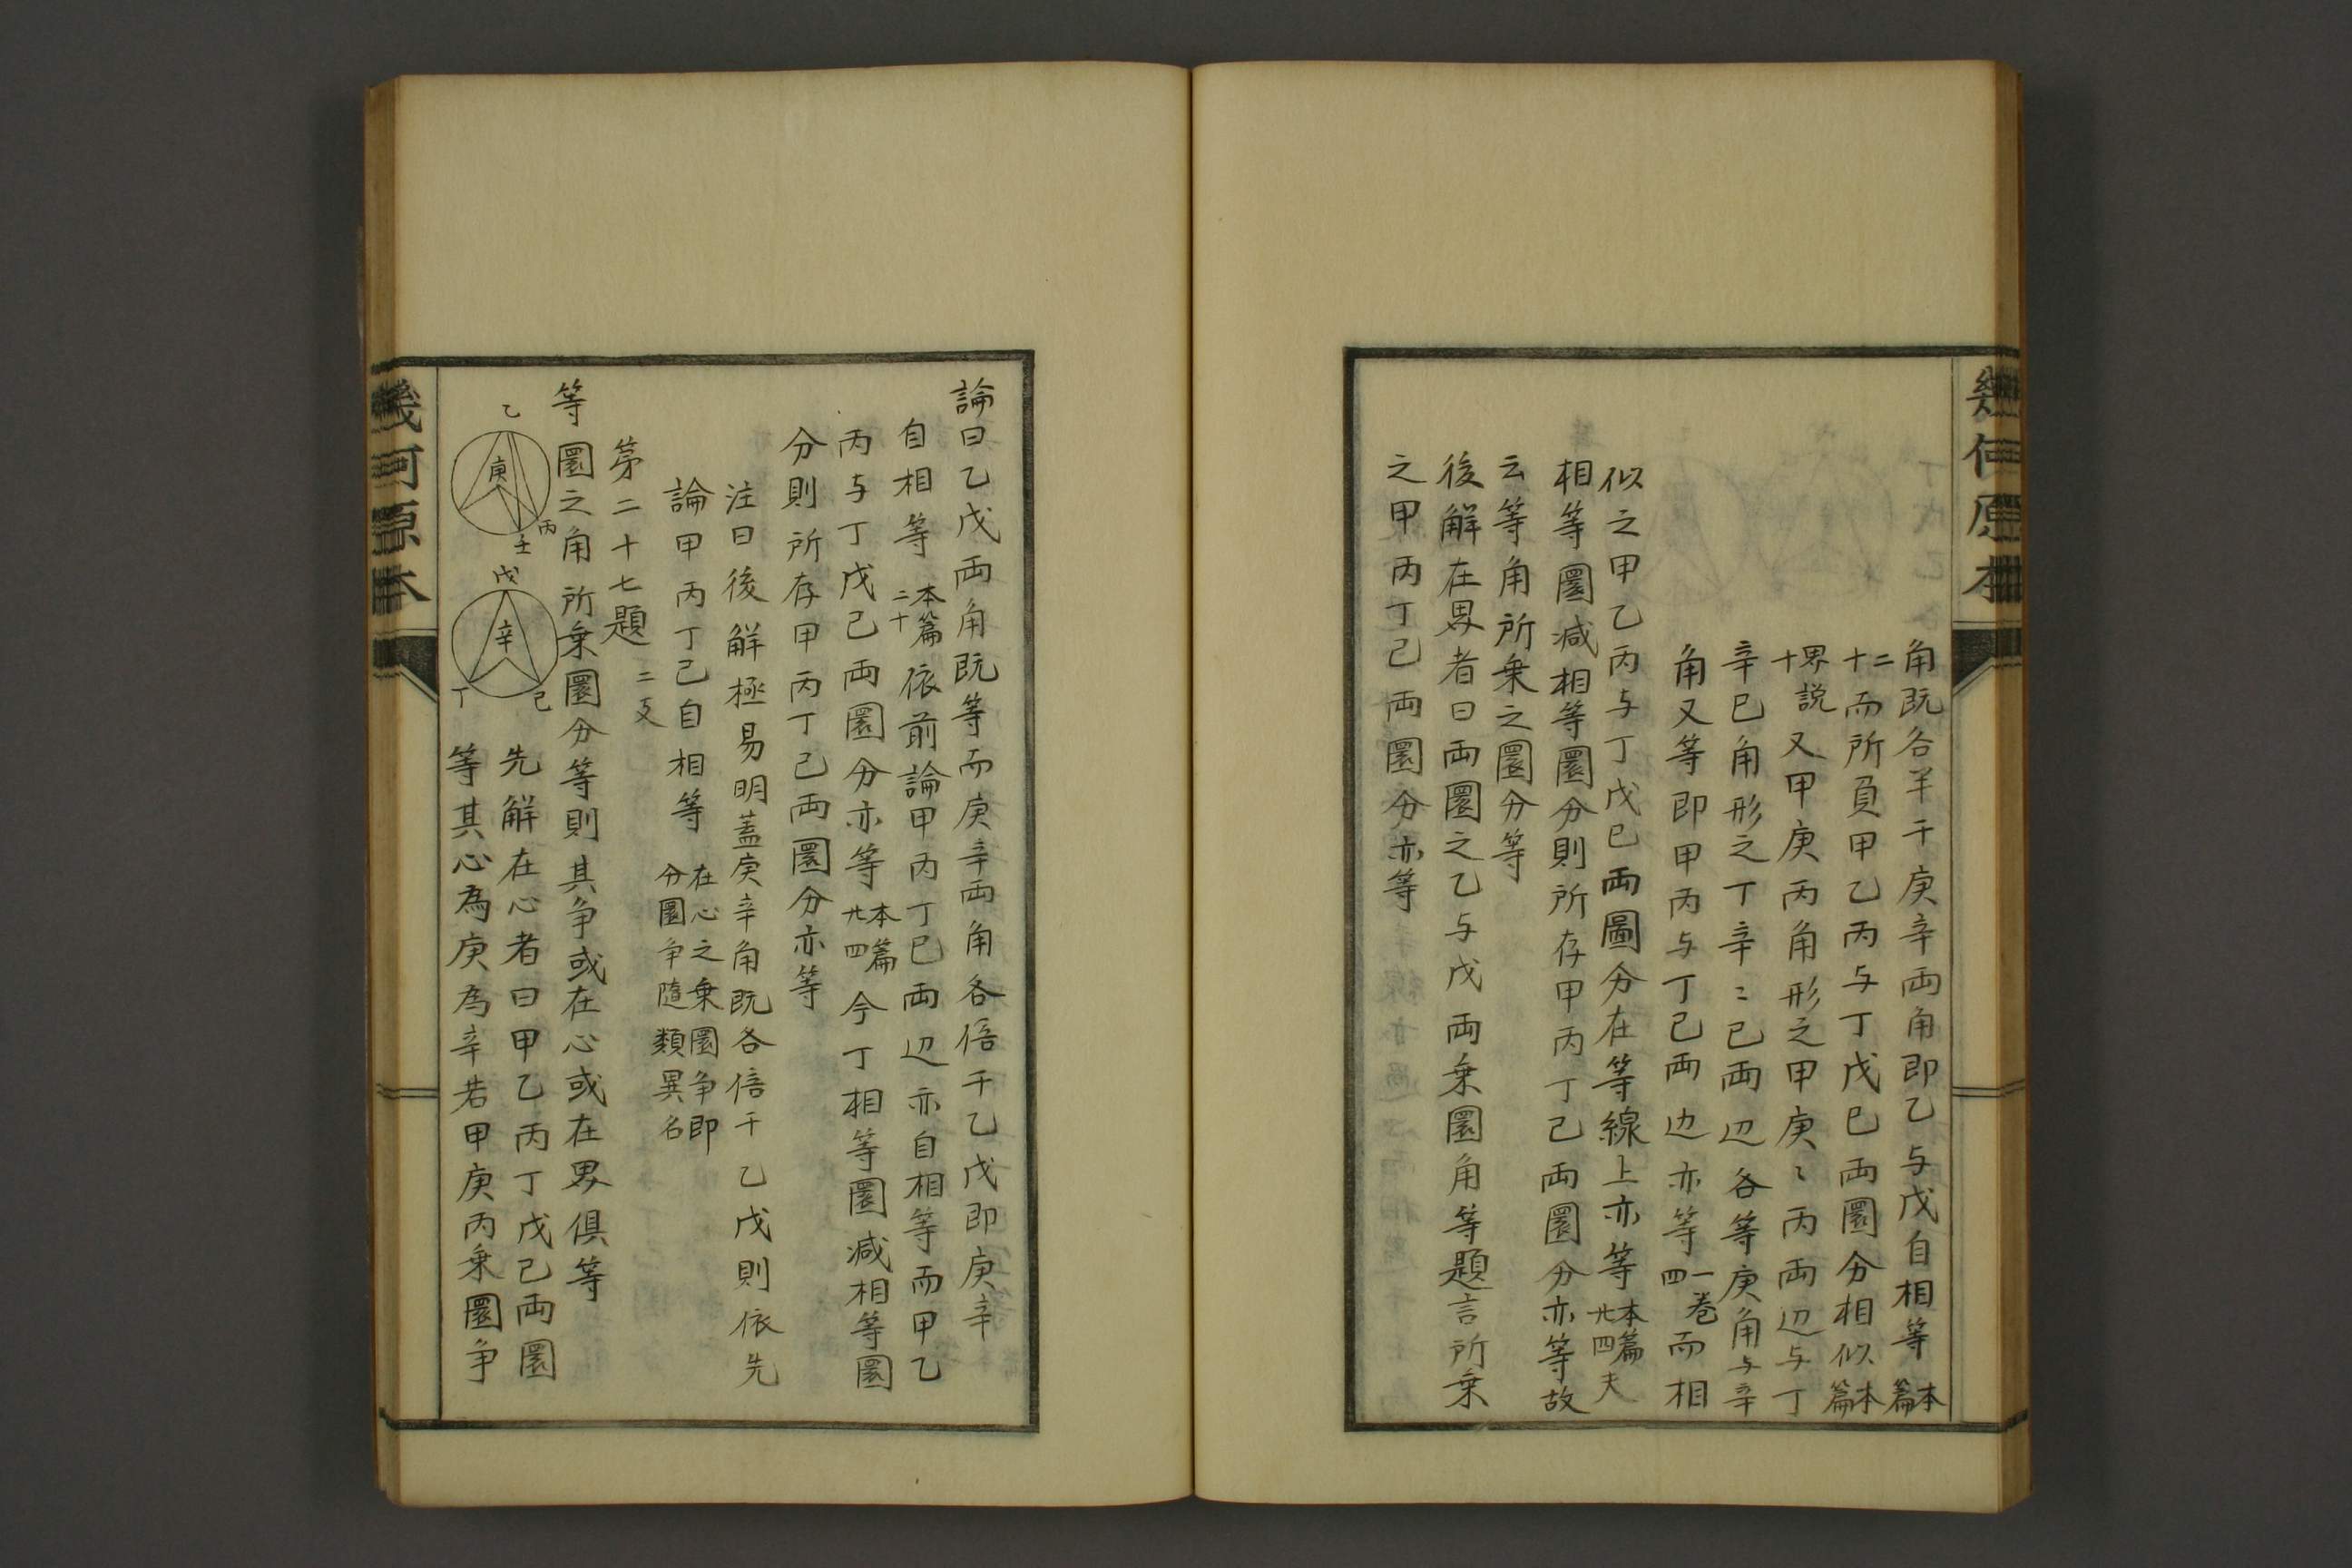 幾何原本
角既各半于庚辛両角即乙与戊自相等本篇
二十而所負甲乙丙与丁戊己両圜分相似本篇
界説十又甲庚丙角形之甲庚〻丙両辺与丁
辛己角形之丁辛〻己両辺各等庚角与辛
角又等即甲丙与丁己両边亦等一卷四而相
似之甲乙丙与丁戊己両圖分在等線上亦等本篇廿四夫
相等圜減相等圜分則所存甲丙丁己両圜分亦等故
云等角所乗之圜分等
後解在界者曰両圜之乙与戊両乗圜角等題言所乗
之甲丙丁己両圜分亦等
論曰乙戊両角既等而庚辛両角各倍于乙戊即庚辛
自相等本篇二十依前論甲丙丁己両辺亦自相等而甲乙
丙与丁戊己両圜分亦等本篇廿四今丁相等圜減相等圜
分則所存甲丙丁己両圜分亦等
注曰後解極易明蓋庚辛角既各倍于乙戊則依先
論甲丙丁己自相等在心之乗圜争即分圜争隨類異名
第二十七題二支
等圜之角所乗圜分等則其争或在心或在界俱等
乙
庚
丙
壬
戊
辛
丁
己
先解在心者曰甲乙丙丁戊己両圜
等其心為庚為辛若甲庚丙乗圜争
幾何原本